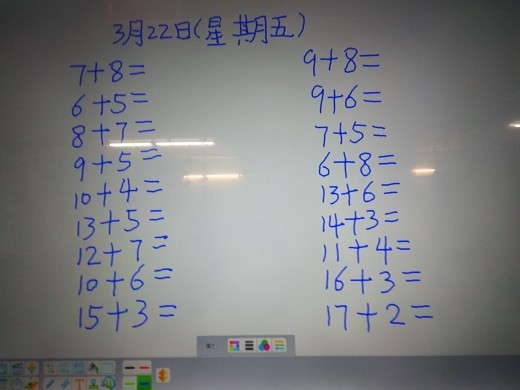 3月22日(星期五)
7+8=
6+5=
8+7=
9+5=
10+4=
13+5=
12+7=
10+6=
15+3=
9+8=
9+6=
7+5=
6+8=
13+6=
14+3=
11+4=
16+3=
17+2=